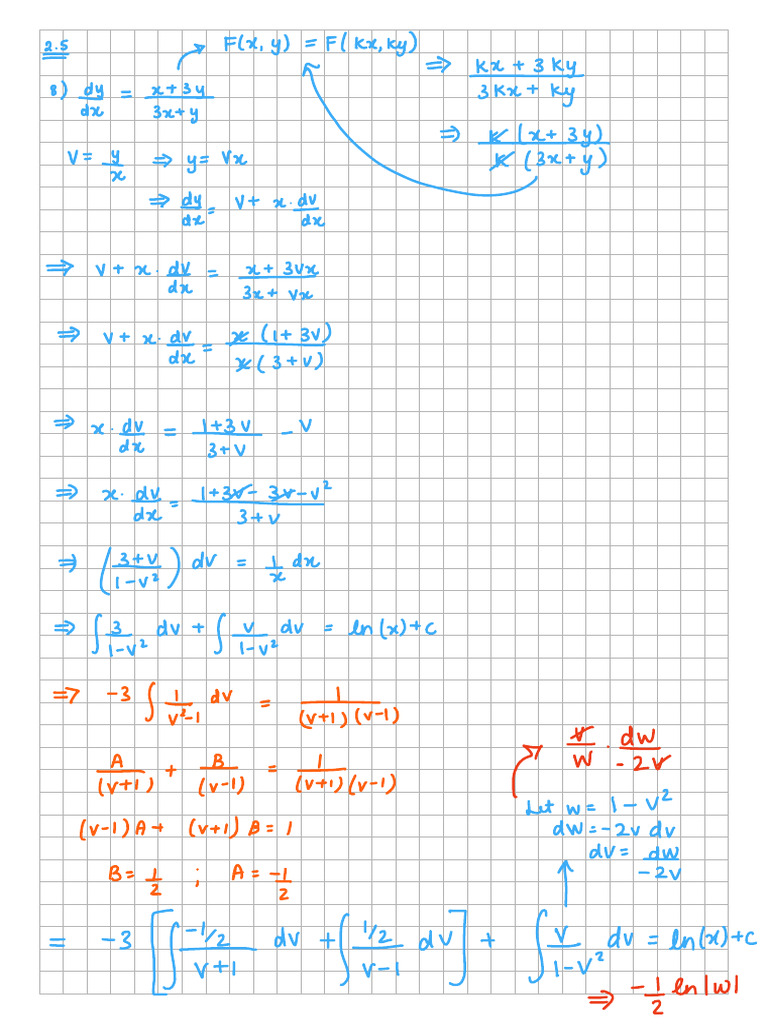 2.5
F(x, y) = F(kx, ky)
8) dy/dx = (x + 3y)/(3x + y)
⇒ (kx + 3ky)/(3kx + ky)
⇒ k(x + 3y)/k(3x + y)
V = y/x ⇒ y = Vx
⇒ dy/dx = V + x · dv/dx
⇒ V + x · dv/dx = (x + 3vx)/(3x + vx)
⇒ V + x · dv/dx = x(1 + 3v)/x(3 + v)
⇒ x · dv/dx = (1 + 3v)/(3 + v) - V
⇒ x · dv/dx = (1 + 3v - 3v - v²)/(3 + v)
⇒ ((3 + v)/(1 - v²)) dv = 1/x dx
⇒ ∫ 3/(1 - v²) dv + ∫ v/(1 - v²) dv = ln(x) + c
⇒ -3 ∫ 1/(v² - 1) dv = 1/((v+1)(v-1))
A/(v+1) + B/(v-1) = 1/((v+1)(v-1))
(v-1)A + (v+1)B = 1
B = 1/2 ; A = -1/2
v/w · dw/-2v
Let w = 1 - v²
dw = -2v dv
dv = dw/-2v
= -3 [∫ (-1/2)/(v+1) dv + ∫ (1/2)/(v-1) dv] + ∫ v/(1 - v²) dv = ln(x) + c
⇒ -1/2 ln|w|